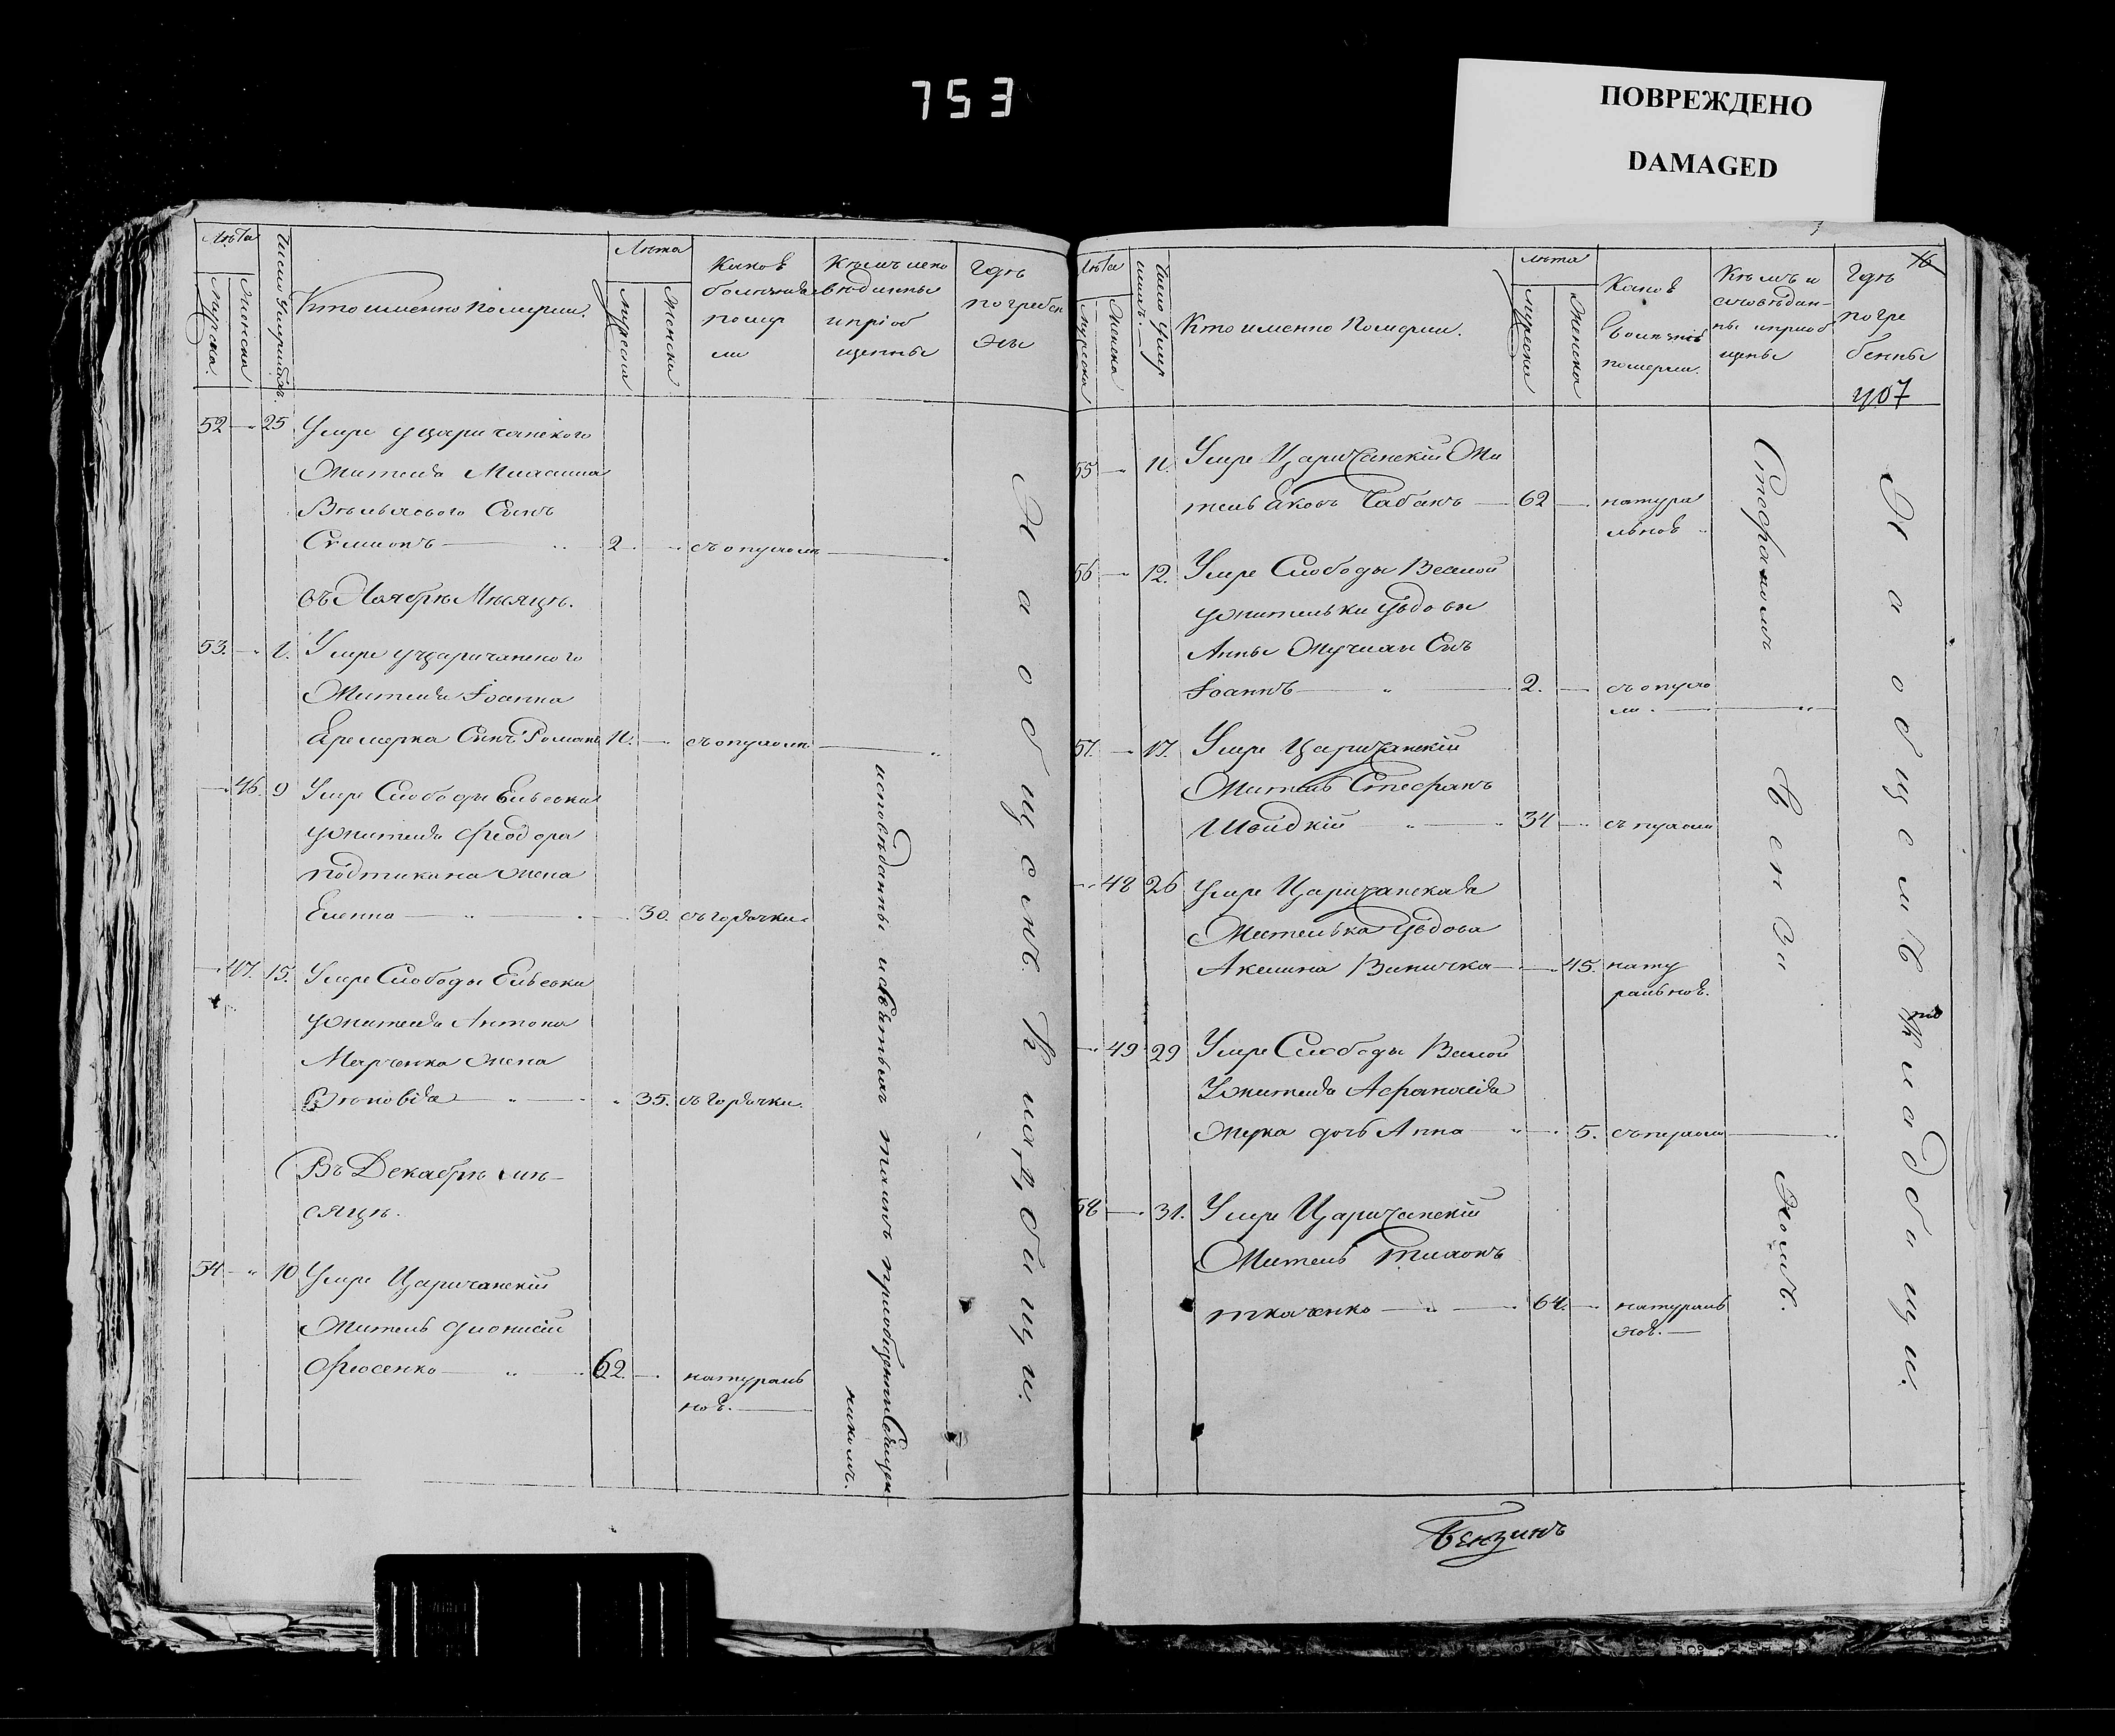 753
ПОВРЕЖДЕНО
DAMAGED
Лѣта
Мужеска.
Женска
Число Умершихъ.
Кто именно Померли.
Лѣта
Мужеска
Женска
Какою
болезнію
помер
ли
Кѣмъ испо
вѣданны
и пріоб
щенны
Гдѣ
погребен
ны
52 25 Умре у царичанского
Жителя
Сын
Симионъ 2 съ опухоли
въ Ноябрѣ Мѣсяцѣ.
53. 1. Умре у царичанского
Жителя Іоанна
Еремерка Сынъ Романъ 11. съ опухоли
46. 9 Умре Слободы
жителя Феодора
жена
Елена 30. съ горячки
47. 15. Умре Слободы
жителя Антона
Марченка жена
35. съ горячки.
Въ Декабрѣ мѣ-
сяцѣ.
54 10 Умре Царичанскій
Житель Дионисій
62. натураль
ною.
исповѣданны и святыхъ таинъ пріобщенны Священ-
никомъ.
На общемъ кладбищи.
Лѣта
Мужеска
Женска
Число Умер
шихъ.
Кто именно Померли.
лѣта
Мужеска
Женска
Какою
болѣзнію
померли.
Кѣмъ и
исповѣдан-
ны и приоб
щены
Гдѣ
погре
бенны
16
407
55 11. Умре Царичанскій Жи
тель Яковъ Чабанъ 62 натура
льною
56 12. Умре Слободы
жительки Удовы
Анны Снъ
Іоаннъ 2. съ опухо
ли
57. 17. Умре Царичанскій
Житель Стефанъ
Швидкій 34 съ пухоли
48 26 Умре Царичанская
Жителька Удова
Акилина 45. нату
ральною.
49 29 Умре Слободы
жителя Афанасія
дочь Анна 5. съ пухоли
58 31. Умре Царичанскій
Житель Тихонъ
Ткаченко 64. натураль
ною.
Стефаномъ
На общемъ кладбищи.
Бензинъ